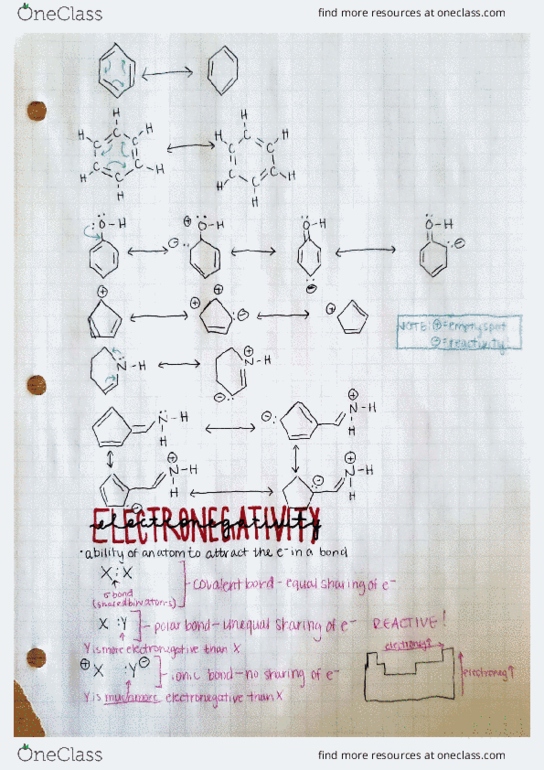 OneClass
find more resources at oneclass.com
H
H
H
C
C
C
C
C
C
H
H
H
H
H
H
C
C
C
C
C
C
H
H
H
Ö-H
⊕ Ö-H
⊖
Ö-H
⊖
Ö-H
⊖
⊕
⊕
⊕
⊖
⊕
NOTE: ⊕=empty spot
⊖=reactivity
N-H
⊕
N-H
⊖
N-H
H
⊖
⊕
N-H
H
⊕
N-H
H
⊖
⊕
N-H
H
⊖
ELECTRONEGATIVITY
electronegativity
•ability of an atom to attract the e⁻ in a bond
X:X
σ bond
covalent bond - equal sharing of e⁻
X :Y
polar bond - unequal sharing of e⁻ REACTIVE!
Y is more electronegative than X
⊕X :Y⊖
ionic bond - no sharing of e⁻
Y is much more electronegative than X
electroneg↑
electroneg↑
OneClass
find more resources at oneclass.com